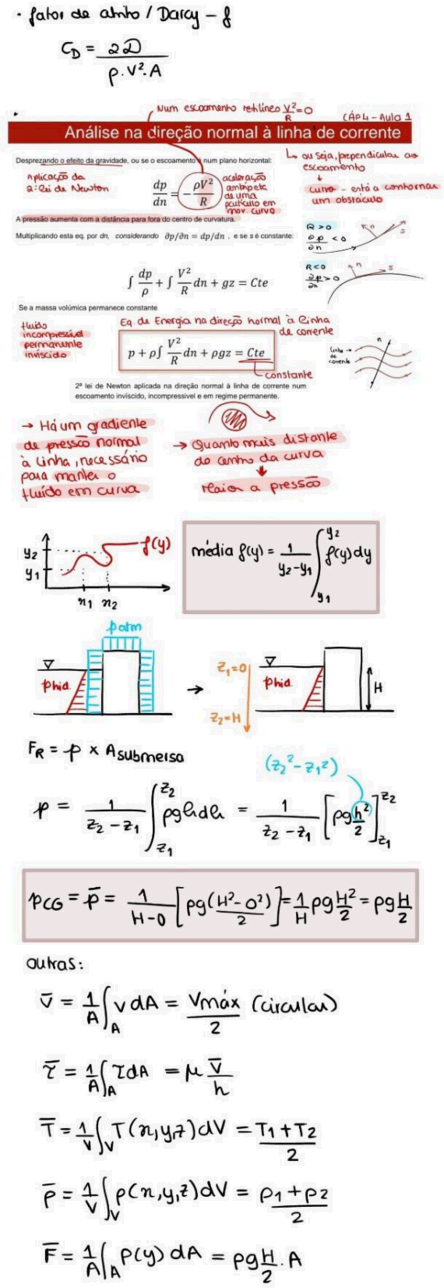 · fator de atrito / Darcy – f
C_D = 2D / ρ.V².A
Num escoamento retilíneo V²/R = 0
CÁP4 - Aula 1
Análise na direção normal à linha de corrente
Desprezando o efeito da gravidade, ou se o escoamento é num plano horizontal:
↳ ou seja, perpendicular ao
escoamento
Aplicação da
2ª lei de Newton
dp/dn = - ρV²/R
aceleração
centrípeta
de uma
partícula em
mov. curvo
curva - está a contornar
um obstáculo
A pressão aumenta com a distância para fora do centro de curvatura.
Multiplicando esta eq. por dn, considerando ∂p/∂n = dp/dn, e se s é constante:
R > 0
∂p/∂n < 0
n
s
∫ dp/ρ + ∫ V²/R dn + gz = Cte
R < 0
∂p/∂n > 0
Se a massa volúmica permanece constante
fluido
incompressível
permanente
invíscido
Eq. da Energia na direção normal à linha
de corrente
p + ρ∫ V²/R dn + ρgz = Cte
constante
linha
de
corrente
n
2ª lei de Newton aplicada na direção normal à linha de corrente num
escoamento invíscido, incompressível e em regime permanente.
→ Há um gradiente
de pressão normal
à linha, necessário
para manter o
fluido em curva
→ Quanto mais distante
do centro da curva
↓
maior a pressão
y2
y1
x1 x2
f(y)
média f(y) = 1/(y2-y1) ∫_{y1}^{y2} f(y)dy
patm
phid
→
z1=0
z2=H
phid
H
F_R = p × A submersa
(z2² - z1²)
p = 1/(z2 - z1) ∫_{z1}^{z2} ρghdh = 1/(z2 - z1) [ρg h²/2]_{z1}^{z2}
p_CG = p̄ = 1/(H-0) [ρg (H²-0²)/2] = 1/H ρg H²/2 = ρg H/2
outras:
v̄ = 1/A ∫_A v dA = Vmáx/2 (circular)
τ̄ = 1/A ∫_A τ dA = μ v̄/h
T̄ = 1/V ∫_V T(x,y,z) dV = (T1 + T2)/2
ρ̄ = 1/V ∫_V ρ(x,y,z) dV = (ρ1 + ρ2)/2
F̄ = 1/A ∫_A P(y) dA = ρg H/2 . A